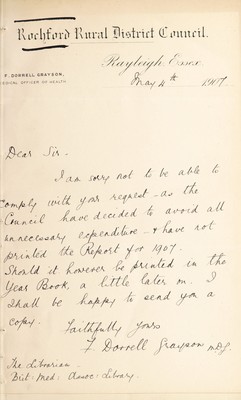 Rochford Rural District Council.
F. DORRELL GRAYSON,
MEDICAL OFFICER OF HEALTH.
Rayleigh, Essex.
May 4th 1907.
Dear Sir.
I am sorry not to be able to
comply with your request - as the
Council have decided to avoid all
unnecessary expenditure - & have not
printed the Report for 1907.
Should it however be printed in the
Year Book, a little later on. I
shall be happy to send you a
copy.
Faithfully yours
F. Dorrell Grayson
The Librarian
Brit: Med: Assoc: Library.